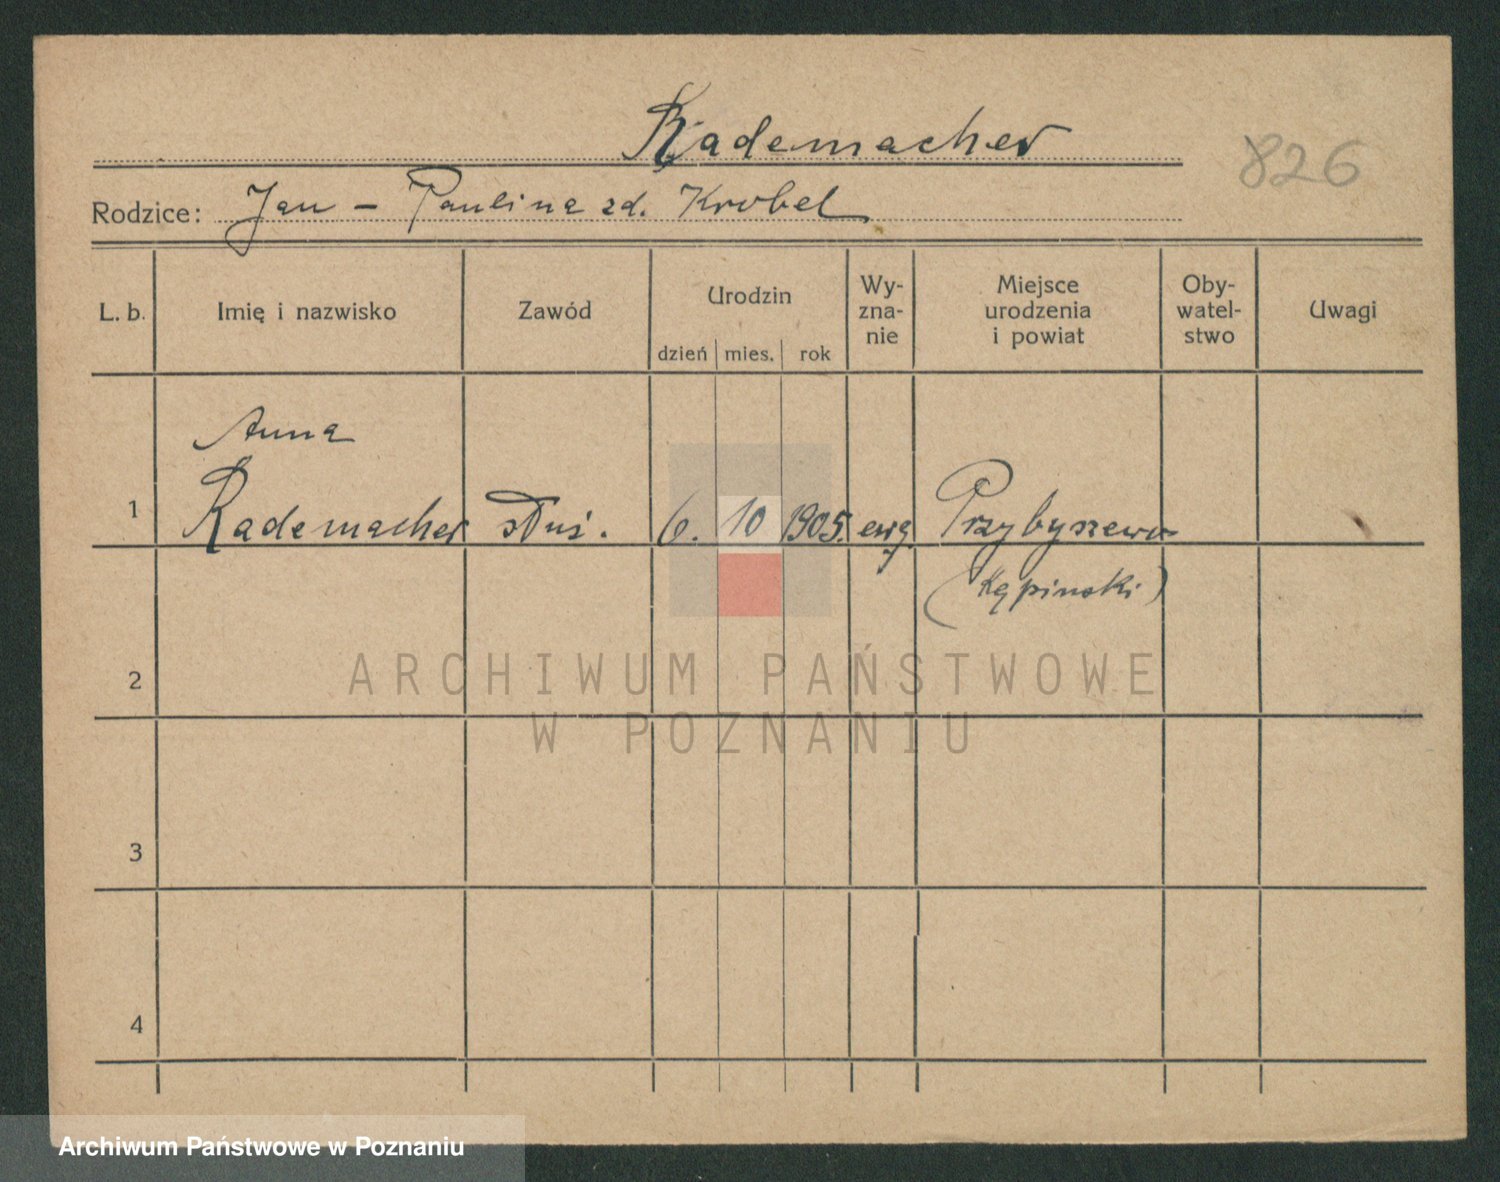 Rademacher
826
Rodzice: Jan - Paulina zd. Krobel
L. b.
Imię i nazwisko
Zawód
Urodzin
dzień
mies.
rok
Wy-
zna-
nie
Miejsce
urodzenia
i powiat
Oby-
watel-
stwo
Uwagi
Anna
1 Rademacher służ. 6. 10 1905. ewg. Przybyszewo
(Kępinski)
2
3
4
ARCHIWUM PAŃSTWOWE
W POZNANIU
Archiwum Państwowe w Poznaniu